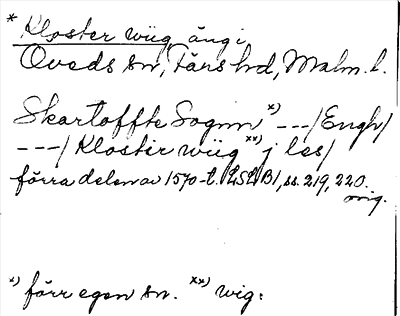 * Kloster wiig äng i
Öveds sn, Färs hd, Malm. l.
Skartoffte Sognn x) ---/Engh/
---/ Kloster wiig xx) j les/
förra delen av 1570-t. LSLB1, ss. 219, 220.
orig.
x) förr egen sn. xx) wig: